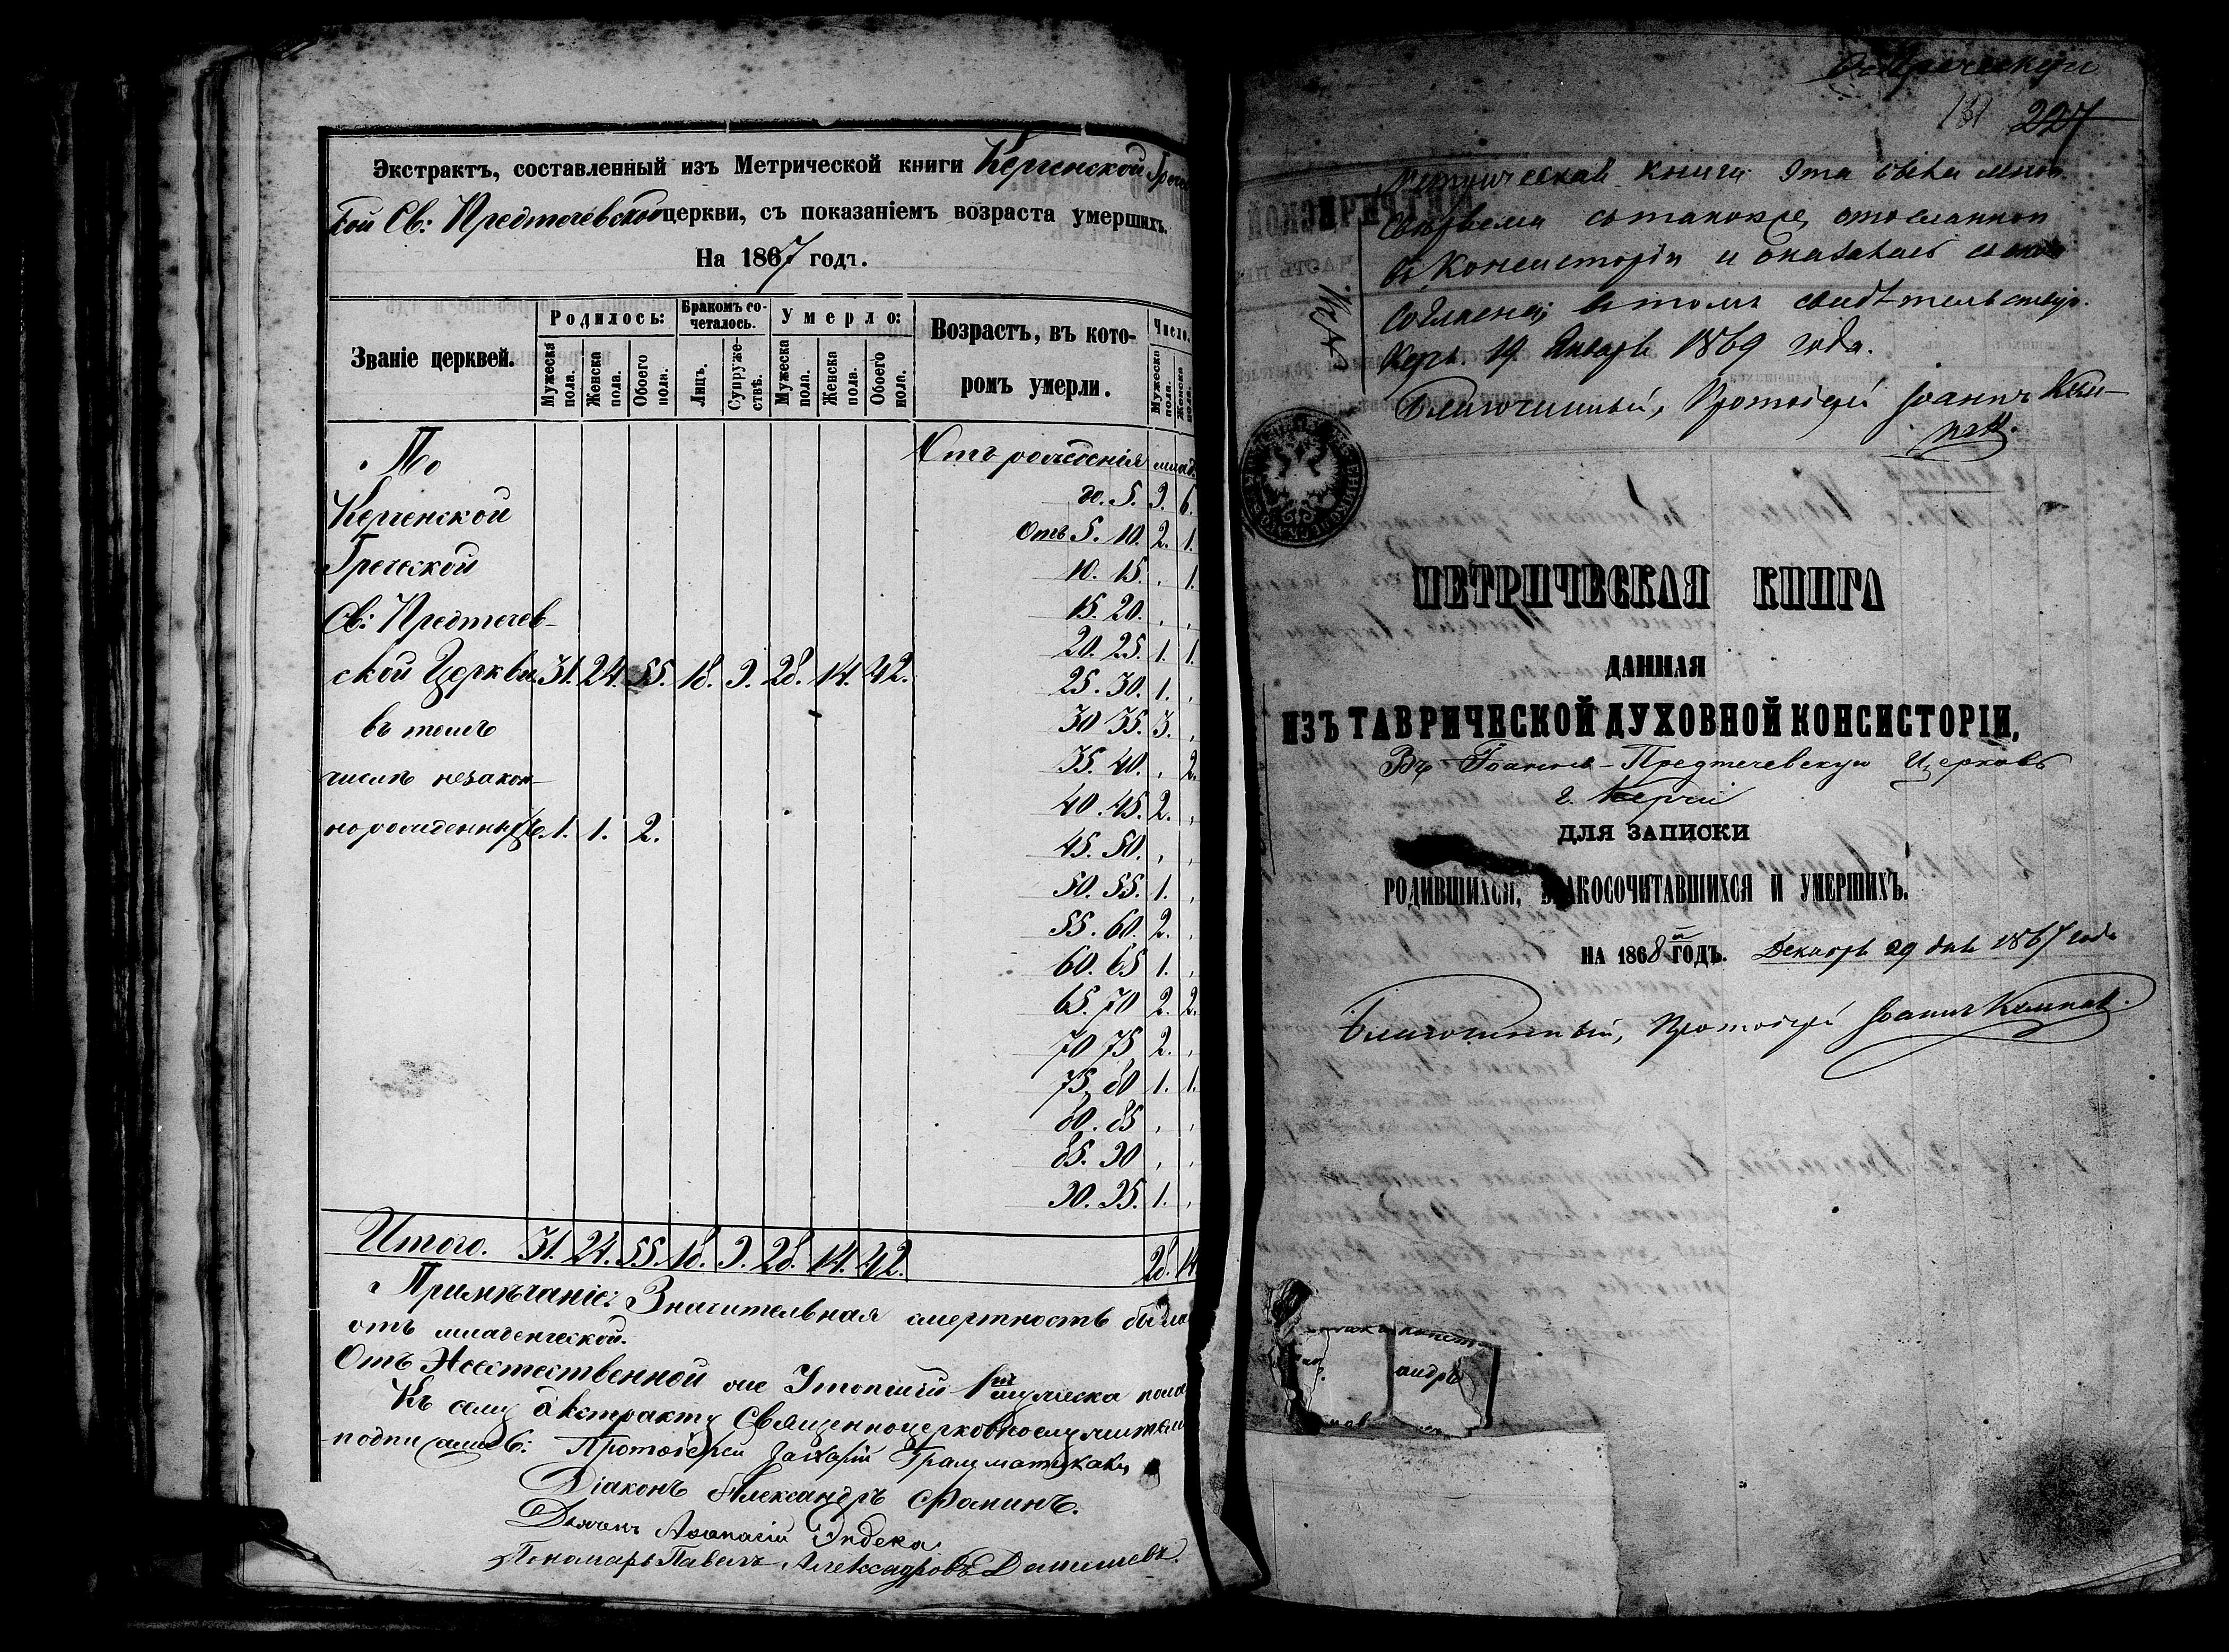 Экстрактъ, составленный изъ Метрической книги Керченской Гречес
кой Св: Предтечевской церкви, съ показаніемъ возраста умершихъ.
На 1867 годъ.
Званіе церквей.
Родилось:
Мужеска пола.
Женска пола.
Обоего пола.
Бракомъ со-
четалось.
Лицъ.
Супруже-
ствъ.
Умерло:
Мужеска пола.
Женска пола.
Обоего пола.
Возрастъ, въ кото-
ромъ умерли.
Число.
Мужеска пола.
Женска пола.
По
Керченской
Греческой
Св: Предтечев-
ской Церкви. 31. 24. 55. 18. 9. 28. 14. 42.
въ томъ
числѣ незакон-
норожденныхъ. 1. 1. 2.
Отъ рожденія млад.
до. 5. 9. 6.
Отъ 5. 10. 2. 1.
10. 15. , 1.
15. 20. , ,
20. 25. 1. 1.
25. 30. 1. ,
30 35. 3. ,
35. 40. , 2.
40. 45. 2. ,
45. 50. , ,
50. 55. 1. ,
55. 60. 2. ,
60. 65 1. ,
65. 70 2. 2.
70 75 2. ,
75. 80 1. 1.
80. 85 , ,
85. 90 , ,
90. 95. 1. ,
Итого. 31. 24. 55. 18. 9. 28. 14. 42. 28. 14
Примѣчаніе: Значительная смертность была
отъ младенческой.
Отъ Неестественной же Утопшій 1 мужеска пола
Къ сему екстракту Священноцерковнослужители
подписались: Протоіерей Захарій Грамматикаки
Діаконъ Александръ Фоминъ.
Дьячокъ Афанасій Индека
Пономарь Павелъ Александровъ
131 227
Метрическая книга эта была мною
свѣряема съ таковою, отосланною
въ Консисторію и оказалась съ нею
согласна; въ томъ свидѣтельствую.
Керчь. 19 Января 1869 года.
Благочинный, Протоіерей Іоаннъ
МЕТРИЧЕСКАЯ КНИГА
ДАННАЯ
ИЗЪ ТАВРИЧЕСКОЙ ДУХОВНОЙ КОНСИСТОРІИ,
Въ Іоанно-Предтечевскую Церковь
г. Керчи
ДЛЯ ЗАПИСКИ
РОДИВШИХСЯ, БРАКОСОЧИТАВШИХСЯ И УМЕРШИХЪ.
НА 1868й ГОДЪ. Декабря 29 дня 1867 года
Благочинный, Протоіерей Іоаннъ